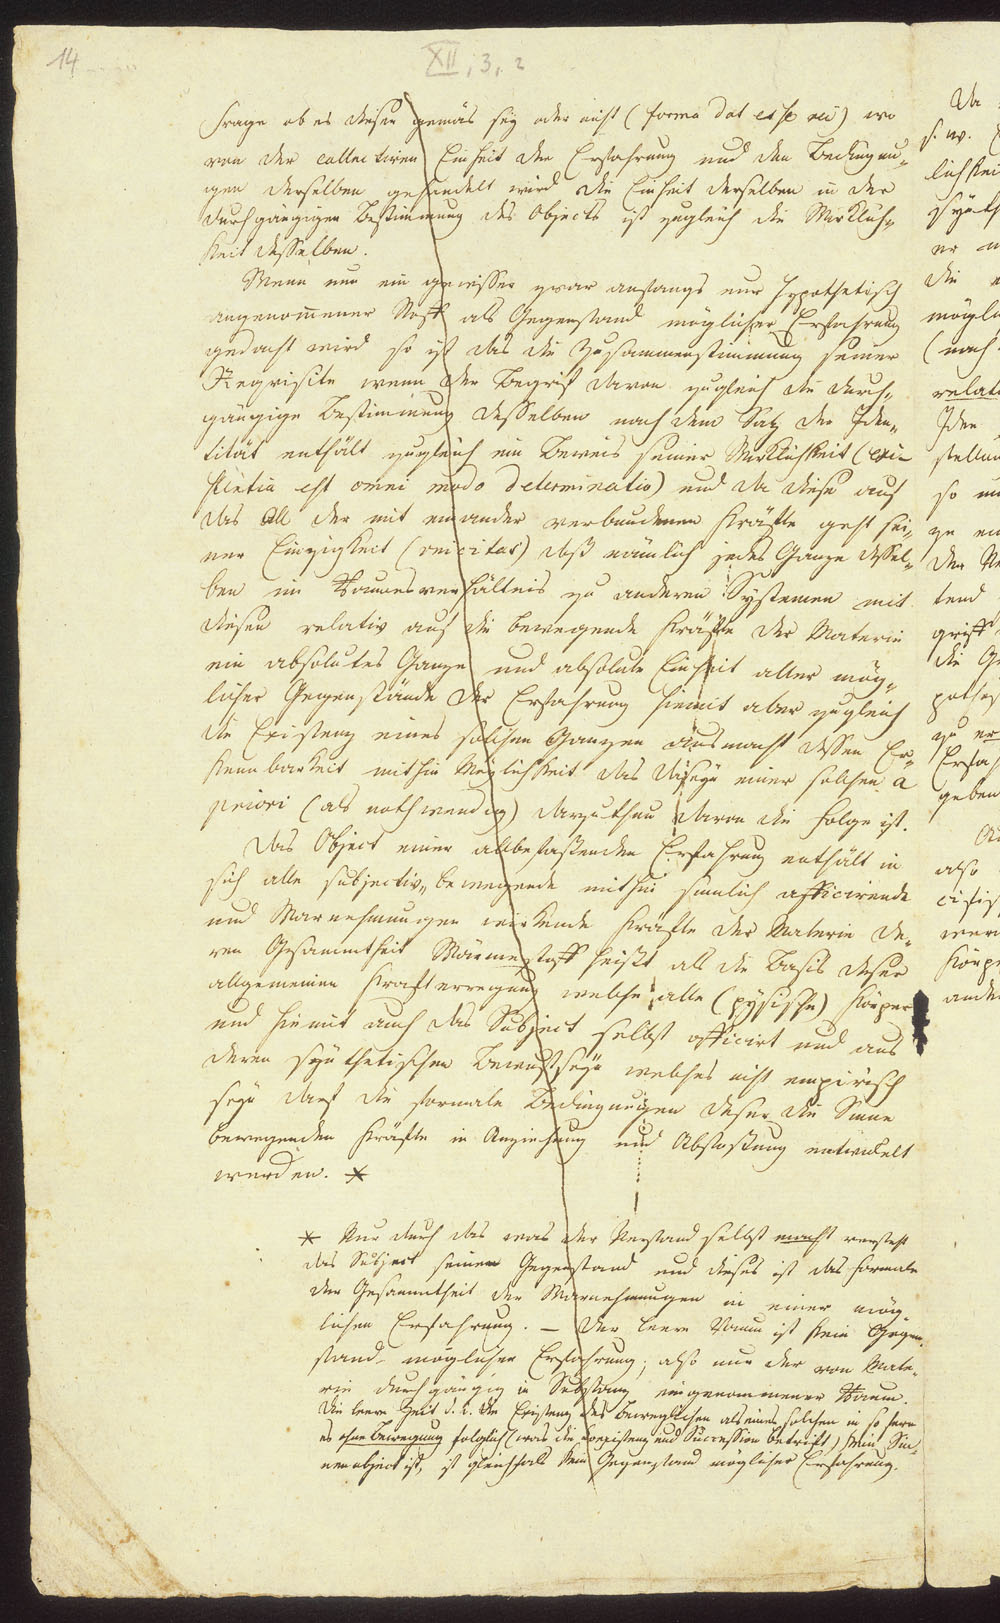 14
XII, 3, 2
Frage ob es diesen gemäs sey oder nicht (forma dat esse rei) wo
von der collectiven Einheit der Erfahrung und den Bedingun-
gen derselben gehandelt wird die Einheit derselben in der
durchgängigen Bestimmung des Objects ist zugleich die Wirklich-
keit desselben.
Wenn nun ein gewisser zwar anfangs nur hypothetisch
angenommener Stoff als Gegenstand möglicher Erfahrung
gedacht wird so ist das die Zusammenstimmung seiner
Reqvisite wenn der Begrif davon zugleich die durch-
gängige Bestimmung desselben nach dem Satz der Iden-
tität enthält zugleich ein Beweis seiner Wirklichkeit (exi-
stentia est omni modo determinatio) und da diese auf
das All der mit einander verbundenen Kräfte geht sei-
ner Einzigkeit (vnicitas) daß nämlich jedes Ganze dessel-
ben im Raumesverhältnis zu anderen Systemen mit
diesen relativ auf die bewegende Kräfte der Materie
ein absolutes Ganze und absolute Einheit aller mög-
licher Gegenstände der Erfahrung hiemit aber zugleich
die Existenz eines solchen Ganzen ausmacht dessen Er-
kennbarkeit mithin Möglichkeit das Daseyn einer solchen a
priori (als nothwendig) darzuthun davon die Folge ist.
Das Object einer allbefassenden Erfahrung enthält in
sich alle subjectiv-bewegende mithin sinnlich afficirende
und Warnehmungen wirkende Kräfte der Materie de-
ren Gesammtheit Wärmestoff heißt als die Basis dieser
allgemeinen Krafterregung welche alle (pysische) Körper
und hiemit auch das Subject selbst afficirt und aus
deren synthetischen Bewustseyn welches nicht empirisch
seyn darf die formale Bedingungen dieser die Sinne
bewegenden Kräfte in Anziehung und Abstoßung entwickelt
werden. *
* Nur durch das was der Verstand selbst macht versteht
das Subject seinen Gegenstand und dieses ist das formale
der Gesammtheit der Warnehmungen in einer mög-
lichen Erfahrung. — Der leere Raum ist kein Gegen-
stand möglicher Erfahrung; also nur der von Mate-
rie durchgängig in Substanz eingenommener Raum.
Die leere Zeit d.i. die Existenz des Beweglichen als eines solchen in so fern
es ohne Bewegung folglich (was die Coexistenz und Succession betrift) kein Sin-
nenobject ist, ist gleichfals kein Gegenstand möglicher Erfahrung.